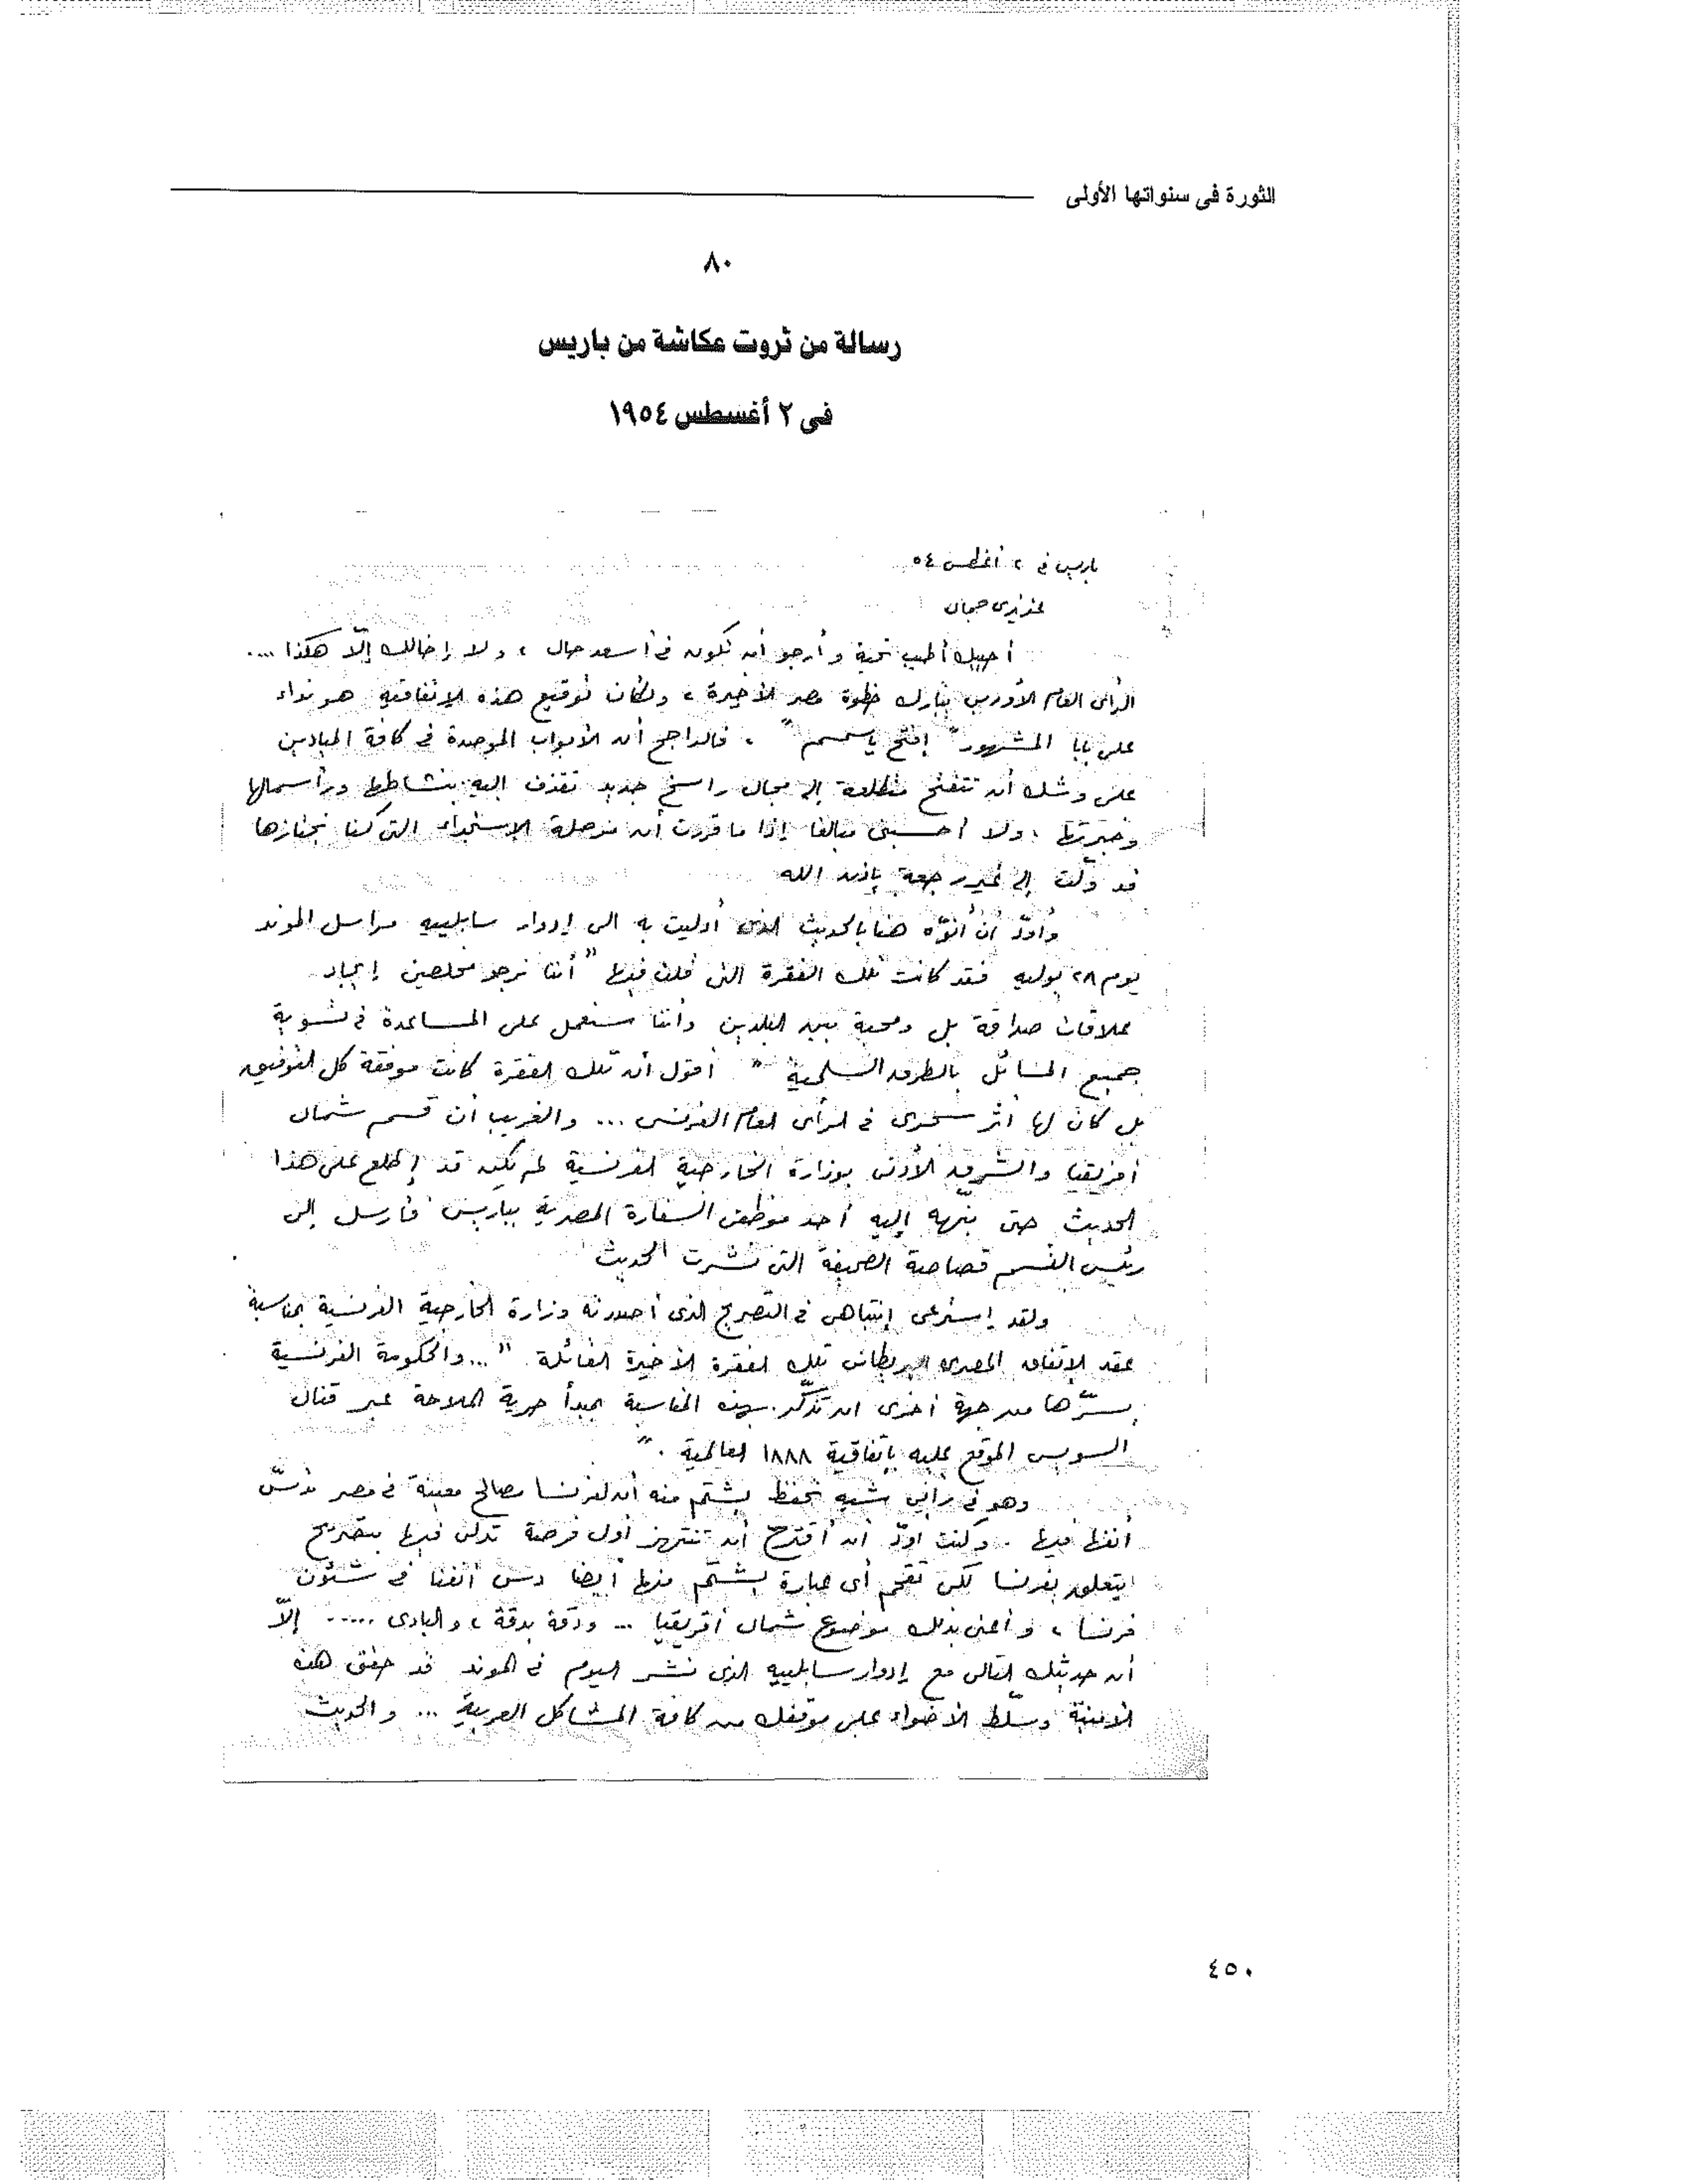 الثورة فى سنواتها الأولى
٨٠
رسالة من ثروت عكاشة من باريس
فى ٢ أغسطس ١٩٥٤
باريس فى ٢ أغسطس ٥٤
عزيزى جمال
أحييك أطيب تحية وأرجو أن تكون فى أسعد حال ، ولا إخالك إلّا هكذا ....
الرأى العام الأوربى يبارك خطوة مصر الأخيرة ، ولكأن توقيع هذه الإتفاقية هو نداء
على بابا المشهور " إفتح يا سمسم " . فالراجح أن الأبواب الموصدة فى كافة الميادين
على وشك أن تتفتح متطلعة إلى مجال راسخ جديد تقذف إليه بنشاطها ورأسمالها
وخبرتها ، ولا أحسبنى مبالغا إذا ما قررت أن مرحلة الإستجداء التى كنا نجتازها
قد ولّت إلى غير رجعة بإذن الله
وأودّ أن أنوّه هنا بالحديث الذى أدليت به الى إدوار سابلييه مراسل الموند
يوم ٢٨ يوليه فقد كانت تلك الفقرة التى قلت فيها " أننا نرجو مخلصين إيجاد
علاقات صداقة بل ومحبة بين البلدين وأننا سنعمل على المساعدة فى تسوية
جميع المسائل بالطرق السلمية " أقول أن تلك الفقرة كانت موفقة كل التوفيق
بل كان لها أثر سحرى فى الرأى العام الفرنسى ... والغريب أن قسم شمال
أفريقيا والشرق الأدنى بوزارة الخارجية الفرنسية لم يكن قد إطلع على هذا
الحديث حتى نبّهه إليه أحد موظفى السفارة المصرية بباريس فأرسل إلى
رئيس القسم قصاصة الصحيفة التى نشرت الحديث
ولقد إسترعى إنتباهى فى التصريح الذى أصدرته وزارة الخارجية الفرنسية بمناسبة
عقد الإتفاق المصرى البريطانى تلك الفقرة الأخيرة القائلة " ... والحكومة الفرنسية
يسرّها من جهة أخرى أن تذكّر بهذه المناسبة بمبدأ حرية الملاحة عبر قنال
السويس الموقع عليه بإتفاقية ١٨٨٨ العالمية . "
وهو فى رأيى شبه تحفظ يشتم منه أن لفرنسا مصالح معينة فى مصر تدسّ
أنفها فيها . وكنت أودّ أن أقترح أن تنتهز أول فرصة تدلى فيها بتصريح
يتعلق بفرنسا لكى تقحم أى عبارة يشتّم منها أيضا دس أنفنا فى شئون
فرنسا ، وأعنى بذلك موضوع شمال أفريقيا ... ودقة بدقة ، والبادى ..... إلّا
أن حديثك التالى مع إدوار سابلييه الذى نشر اليوم فى الموند قد حقق هذه
الأمنية وسلّط الأضواء على موقفك من كافة المشاكل العربية ... والحديث
٤٥٠